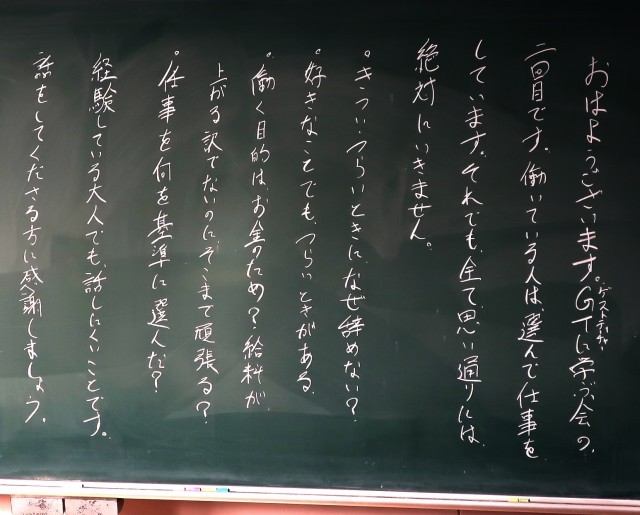 おはようございます。GTに学ぶ会の、
ゲストティーチャー
二回目です。働いている人は、選んで仕事を
しています。それでも、全て、思い通りには、
絶対にいきません。
。きつい・つらいときに、なぜ辞めない？
。好きなことでも、つらいときがある。
。働く目的は、お金のため？給料が
上がる訳でないのにそこまで頑張る？
。仕事を何を基準に選んだ？
経験している大人でも話しにくいことです。
話をしてくださる方に感謝しましょう。